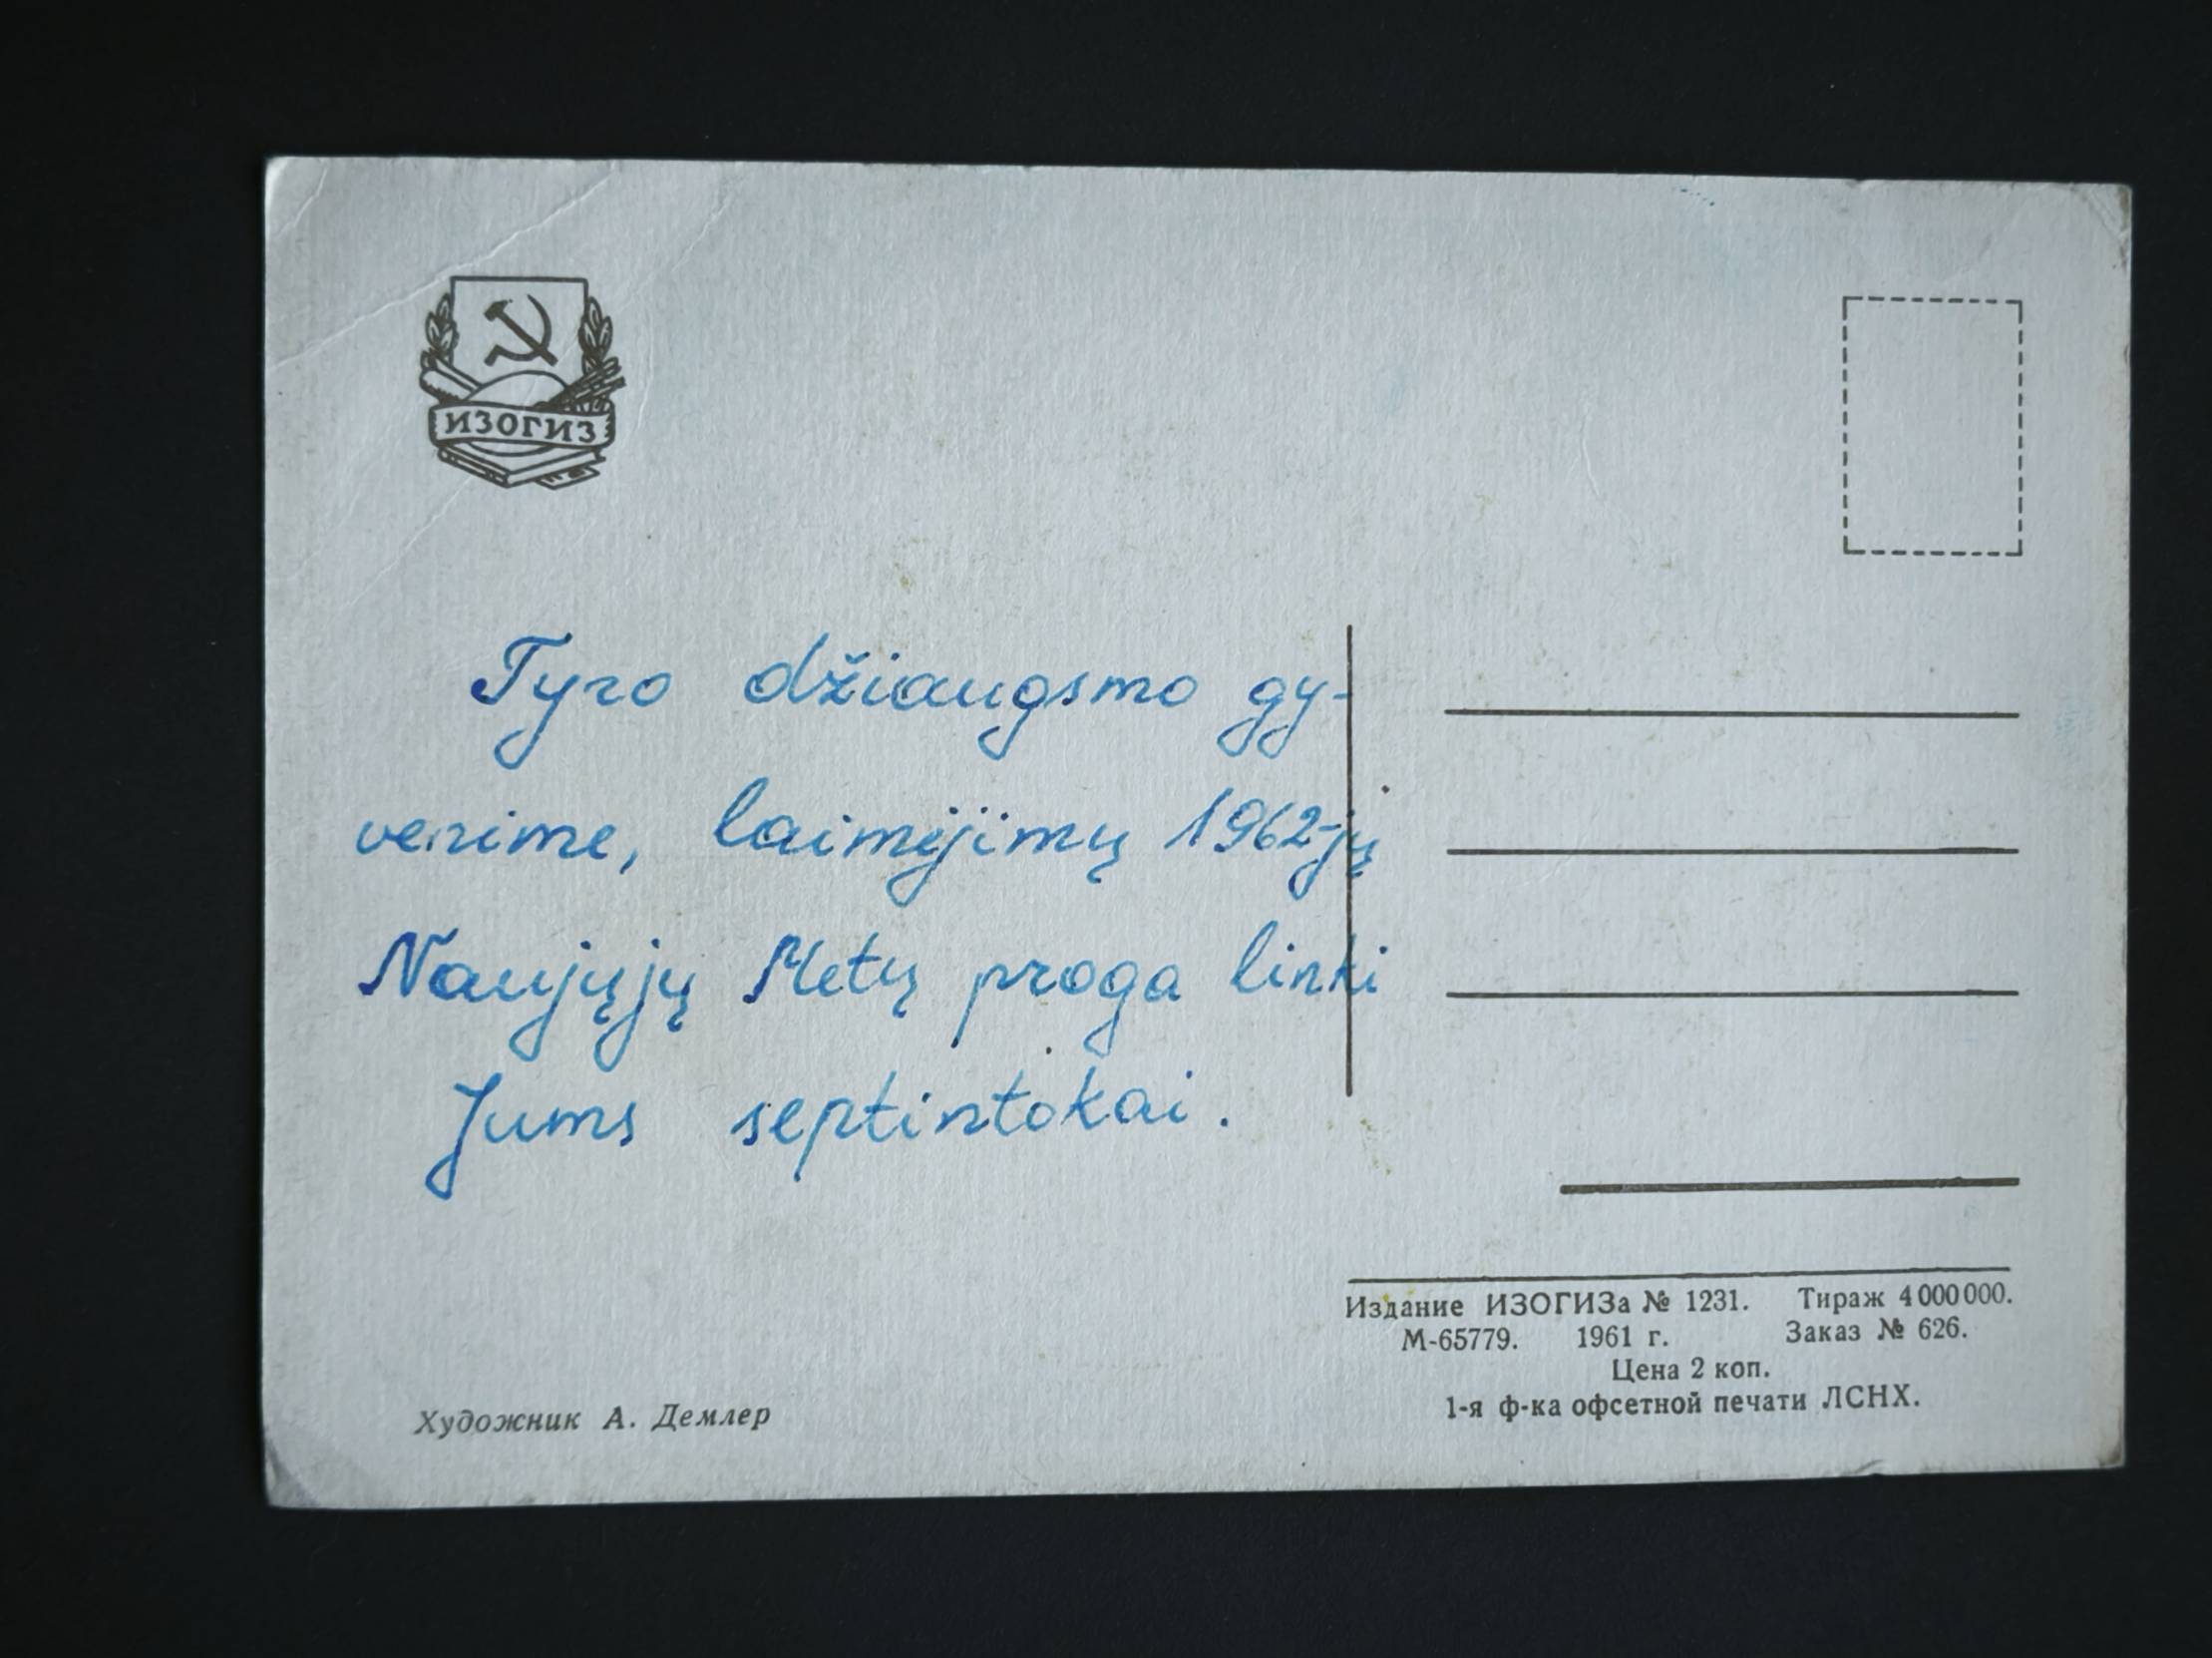 ИЗОГИЗ
Tyro džiaugsmo gy-
venime, laimėjimų 1962-jų
Naujųjų Metų proga linki
Jums septintokai.
Издание ИЗОГИЗа № 1231. Тираж 4 000 000.
М-65779. 1961 г. Заказ № 626.
Цена 2 коп.
1-я ф-ка офсетной печати ЛСНХ.
Художник А. Демлер